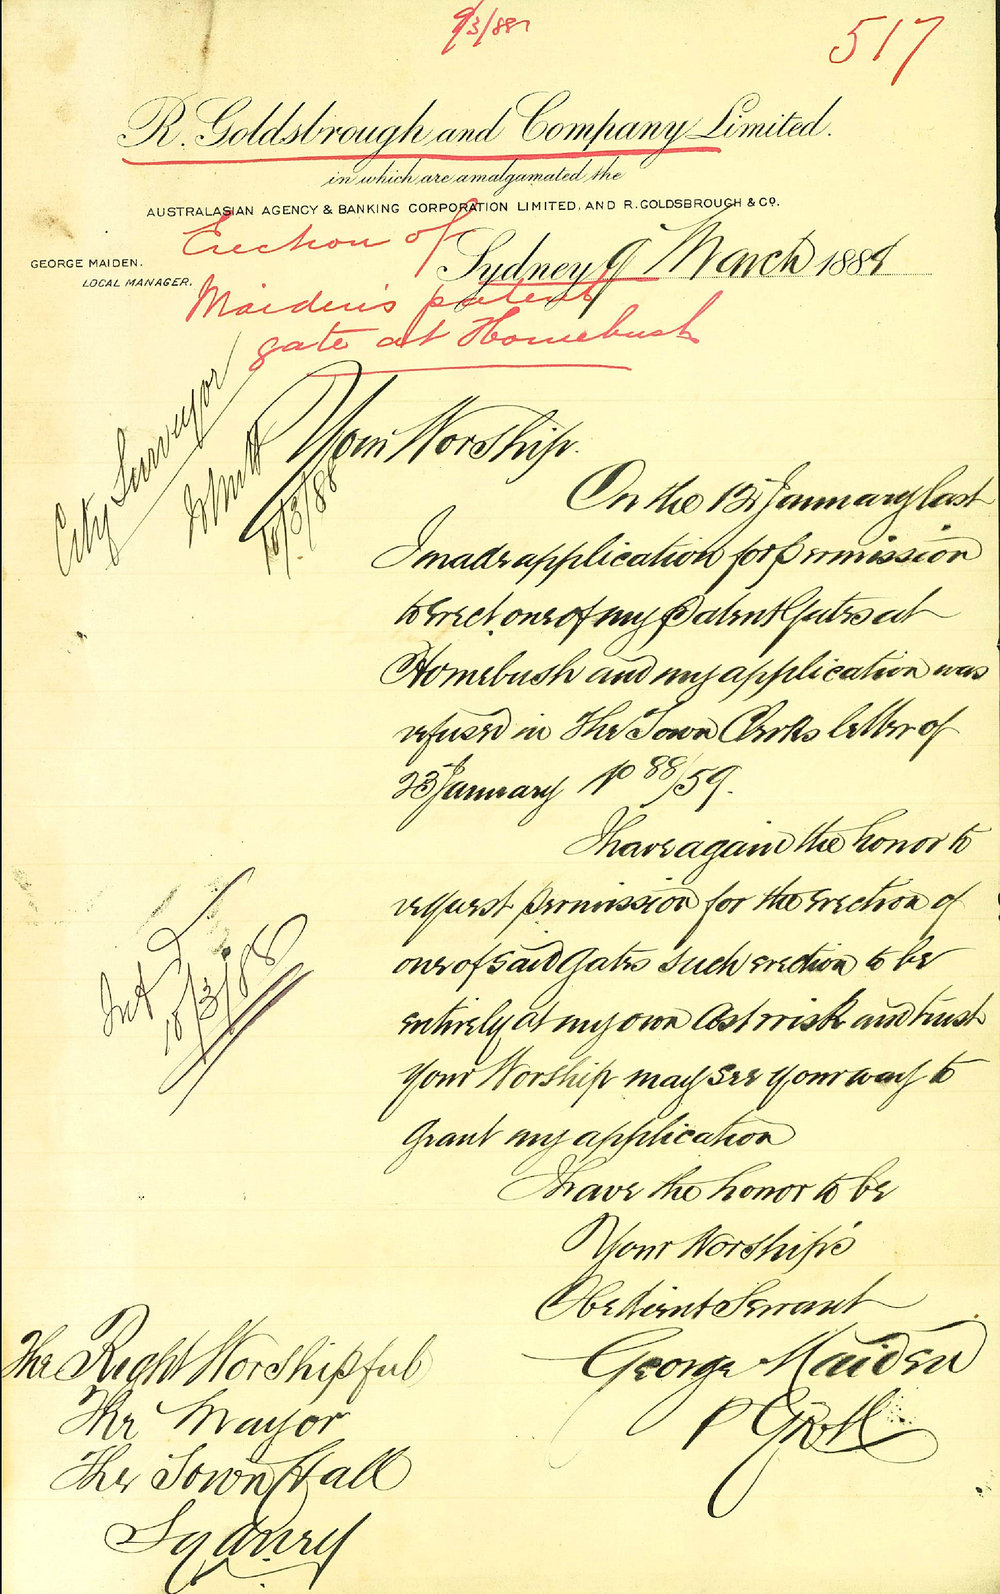 9/3/88
517
R. Goldsbrough and Company Limited.
in which are amalgamated the
AUSTRALASIAN AGENCY & BANKING CORPORATION LIMITED, AND R. GOLDSBROUGH & CO.
Erection of
GEORGE MAIDEN.
LOCAL MANAGER.
Sydney 9 March 1888
Maiden's patent
gate at Homebush
City Surveyor
10/3/88
Your Worship.
On the 13 January last
I made application for permission
to erect one of my Patent Gates at
Homebush and my application was
refused in The Town Clerks letter of
23 January No 88/59.
I have again the honor to
request permission for the erection of
one of said Gates such erection to be
entirely at my own Cost & risk and trust
Your Worship may see your way to
grant my application
I have the honor to be
Your Worship's
Obedient Servant
George Maiden
The Right Worshipful
The Mayor
The Town Hall
Sydney
10/3/88